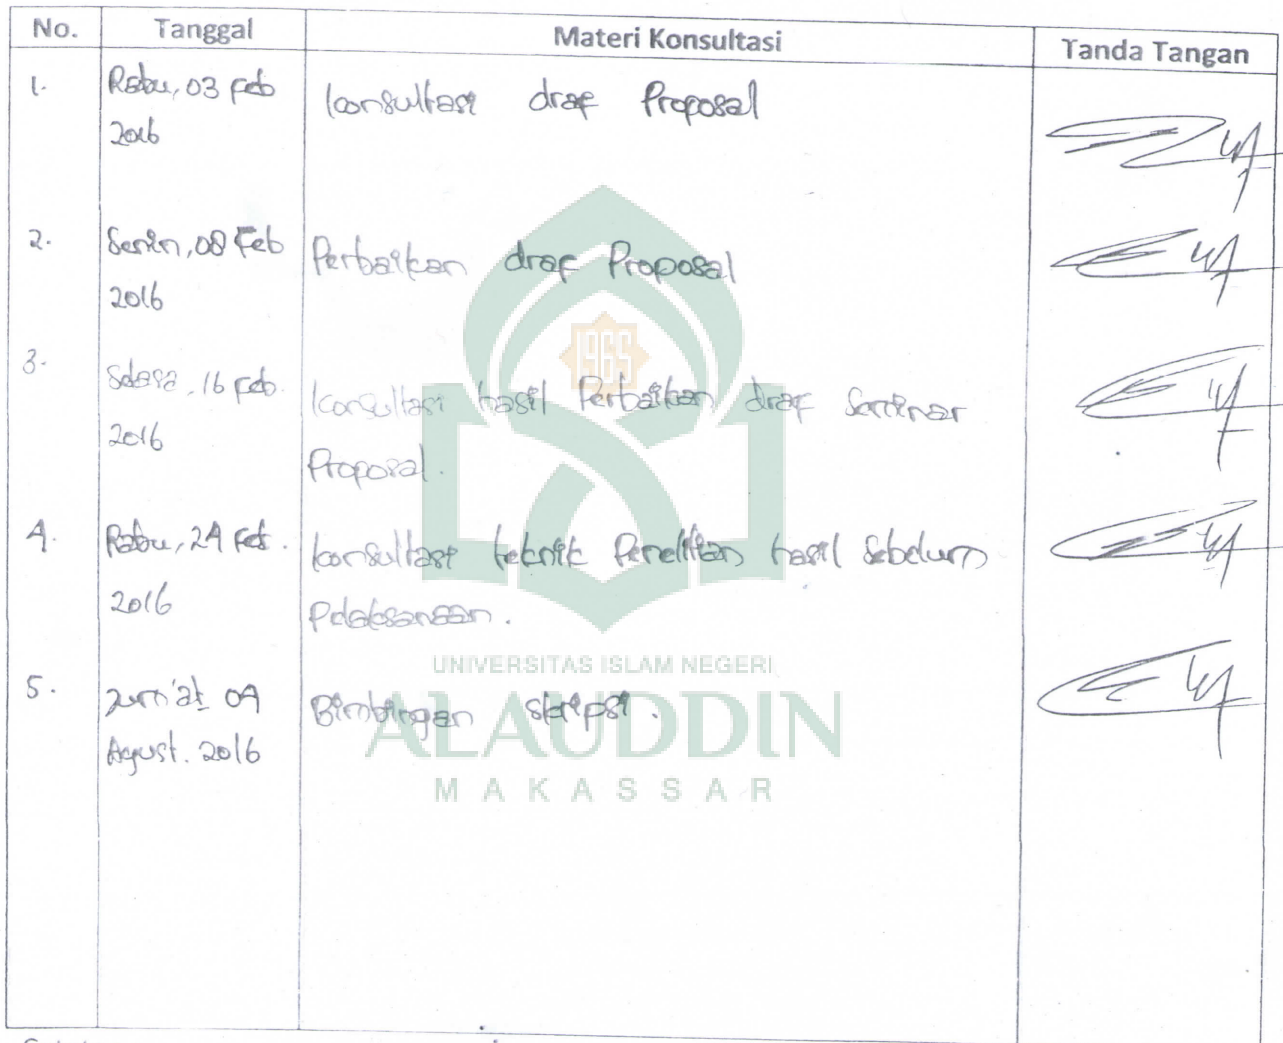 No. Tanggal Materi Konsultasi Tanda Tangan
1. Rabu, 03 Feb konsultasi draf Proposal
2016
2. Senin, 08 Feb Perbaikan draf Proposal
2016
3. Selasa, 16 Feb. konsultasi hasil Perbaikan draf Seminar
2016 Proposal.
4. Rabu, 24 Feb. konsultasi teknik Penelitian hasil Sebelum
2016 Pelaksanaan.
5. Jum'at 09 Bimbingan skripsi.
Agust. 2016
1965
UNIVERSITAS ISLAM NEGERI
ALAUDDIN
MAKASSAR